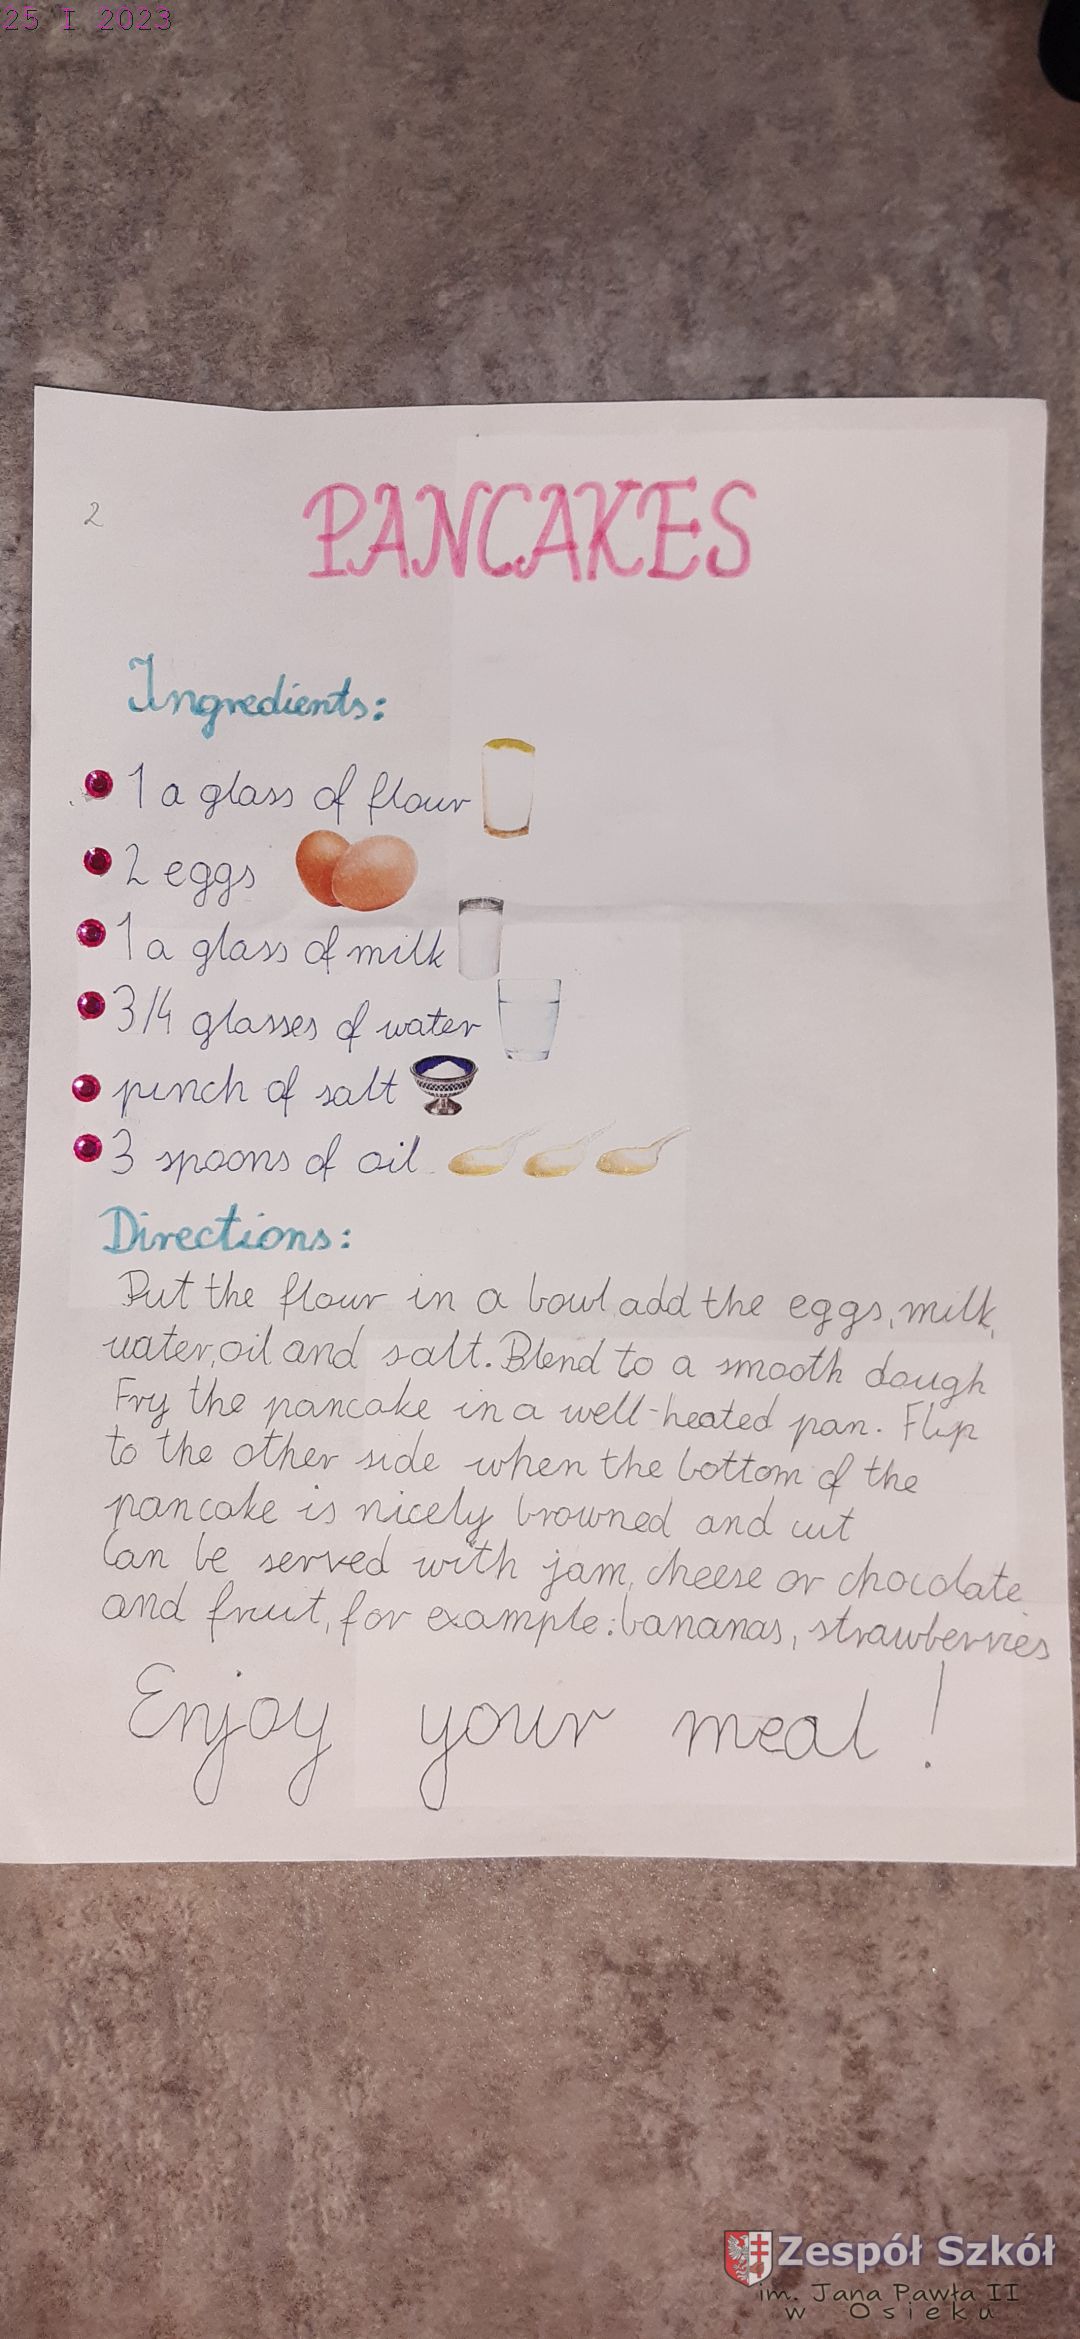 25 I 2023
2
PANCAKES
Ingredients:
1 a glass of flour
2 eggs
1 a glass of milk
3/4 glasses of water
pinch of salt
3 spoons of oil
Directions:
Put the flour in a bowl, add the eggs, milk,
water, oil and salt. Blend to a smooth dough
Fry the pancake in a well-heated pan. Flip
to the other side when the bottom of the
pancake is nicely browned and cut
Can be served with jam, cheese or chocolate
and fruit, for example: bananas, strawberries
Enjoy your meal!
Zespół Szkół
im. Jana Pawła II
w Osieku